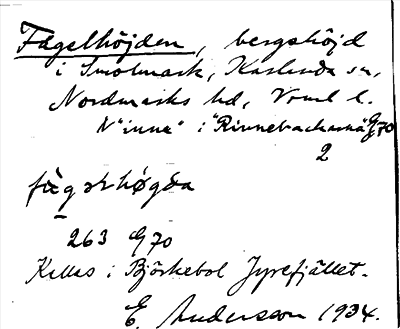 Fågelhöjden, bergshöjd
i Smolmark, Karlanda sn,
Nordmarks hd, Vrml l.
N "inne" i "Rinnebackarna" G70
2
fɷ̀gəlhøgda
263 G70
Kallas i Björkebol Jyrefjället.
E. Andersson 1934.